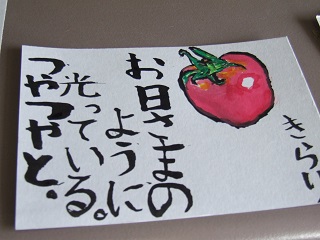 お日さまの
ように
光っている。
つやつやと.
きらり